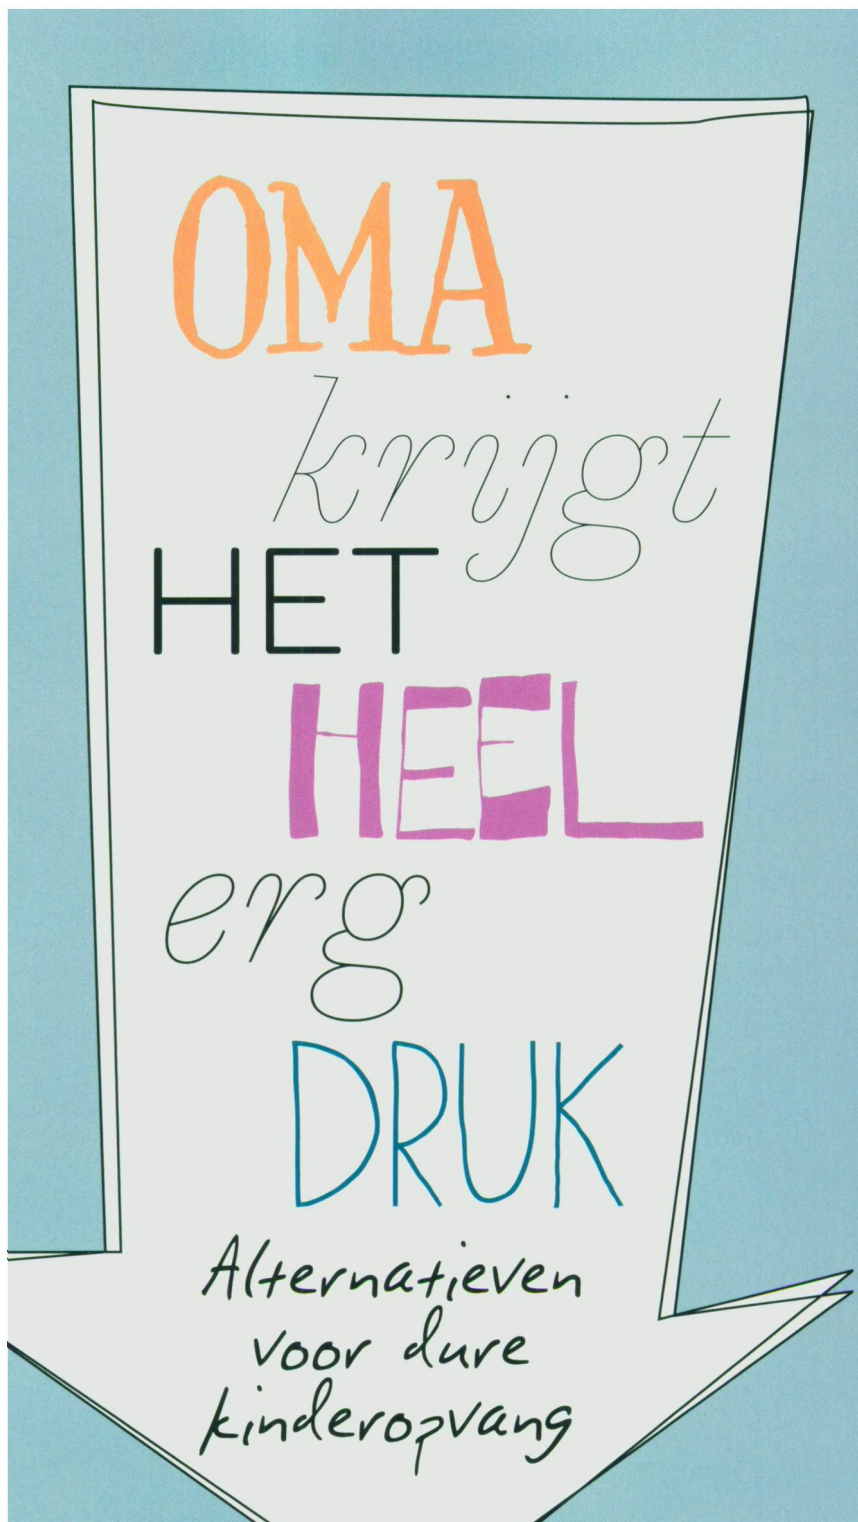 OMA
krijgt
HET
HEEL
erg
DRUK
Alternatieven
voor dure
kinderopvang